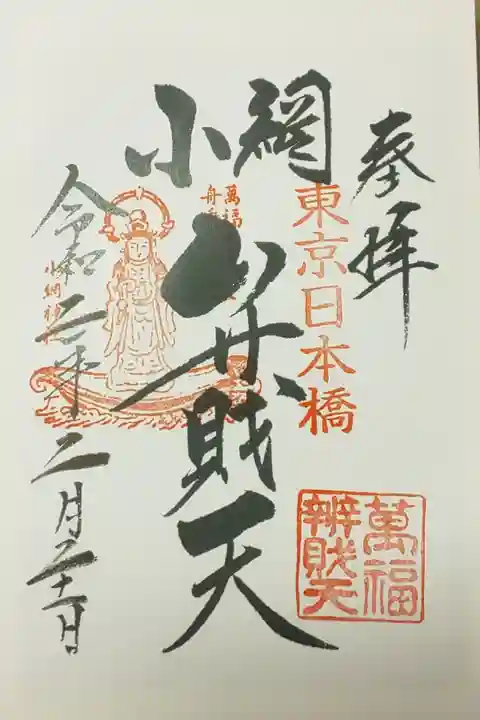 奉拝
東京日本橋
小網
弁財天
萬福
舟
小網神
令和二年二月二十一日
萬福
辨財天